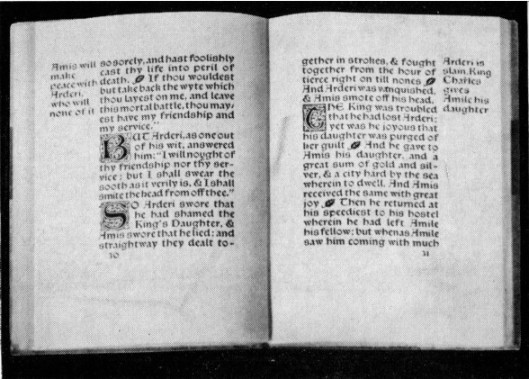 Amis will
make
peace with
Arderi,
who will
none of it
so sorely, and hast foolishly
cast thy life into peril of
death. If thou wouldest
but take back the wyte which
thou layest on me, and leave
this mortal battle, thou may-
est have my friendship and
my service."
BUT Arderi, as one out
of his wit, answered
him: "I will noyght of
thy friendship nor thy ser-
vice; but I shall swear the
sooth as it verily is, & I shall
smite the head from off thee."
SO Arderi swore that
he had shamed the
King's Daughter, &
Amis swore that he lied; and
straightway they dealt to-
30
gether in strokes, & fought
together from the hour of
tierce right on till nones
And Arderi was vanquished,
& Amis smote off his head.
THE King was troubled
that he had lost Arderi;
yet was he joyous that
his daughter was purged of
her guilt And he gave to
Amis his daughter, and a
great sum of gold and sil-
ver, & a city hard by the sea
wherein to dwell. And Amis
received the same with great
joy Then he returned at
his speediest to his hostel
wherein he had left Amile
his fellow; but whenas Amile
saw him coming with much
31
Arderi is
slain. King
Charles
gives
Amile his
daughter